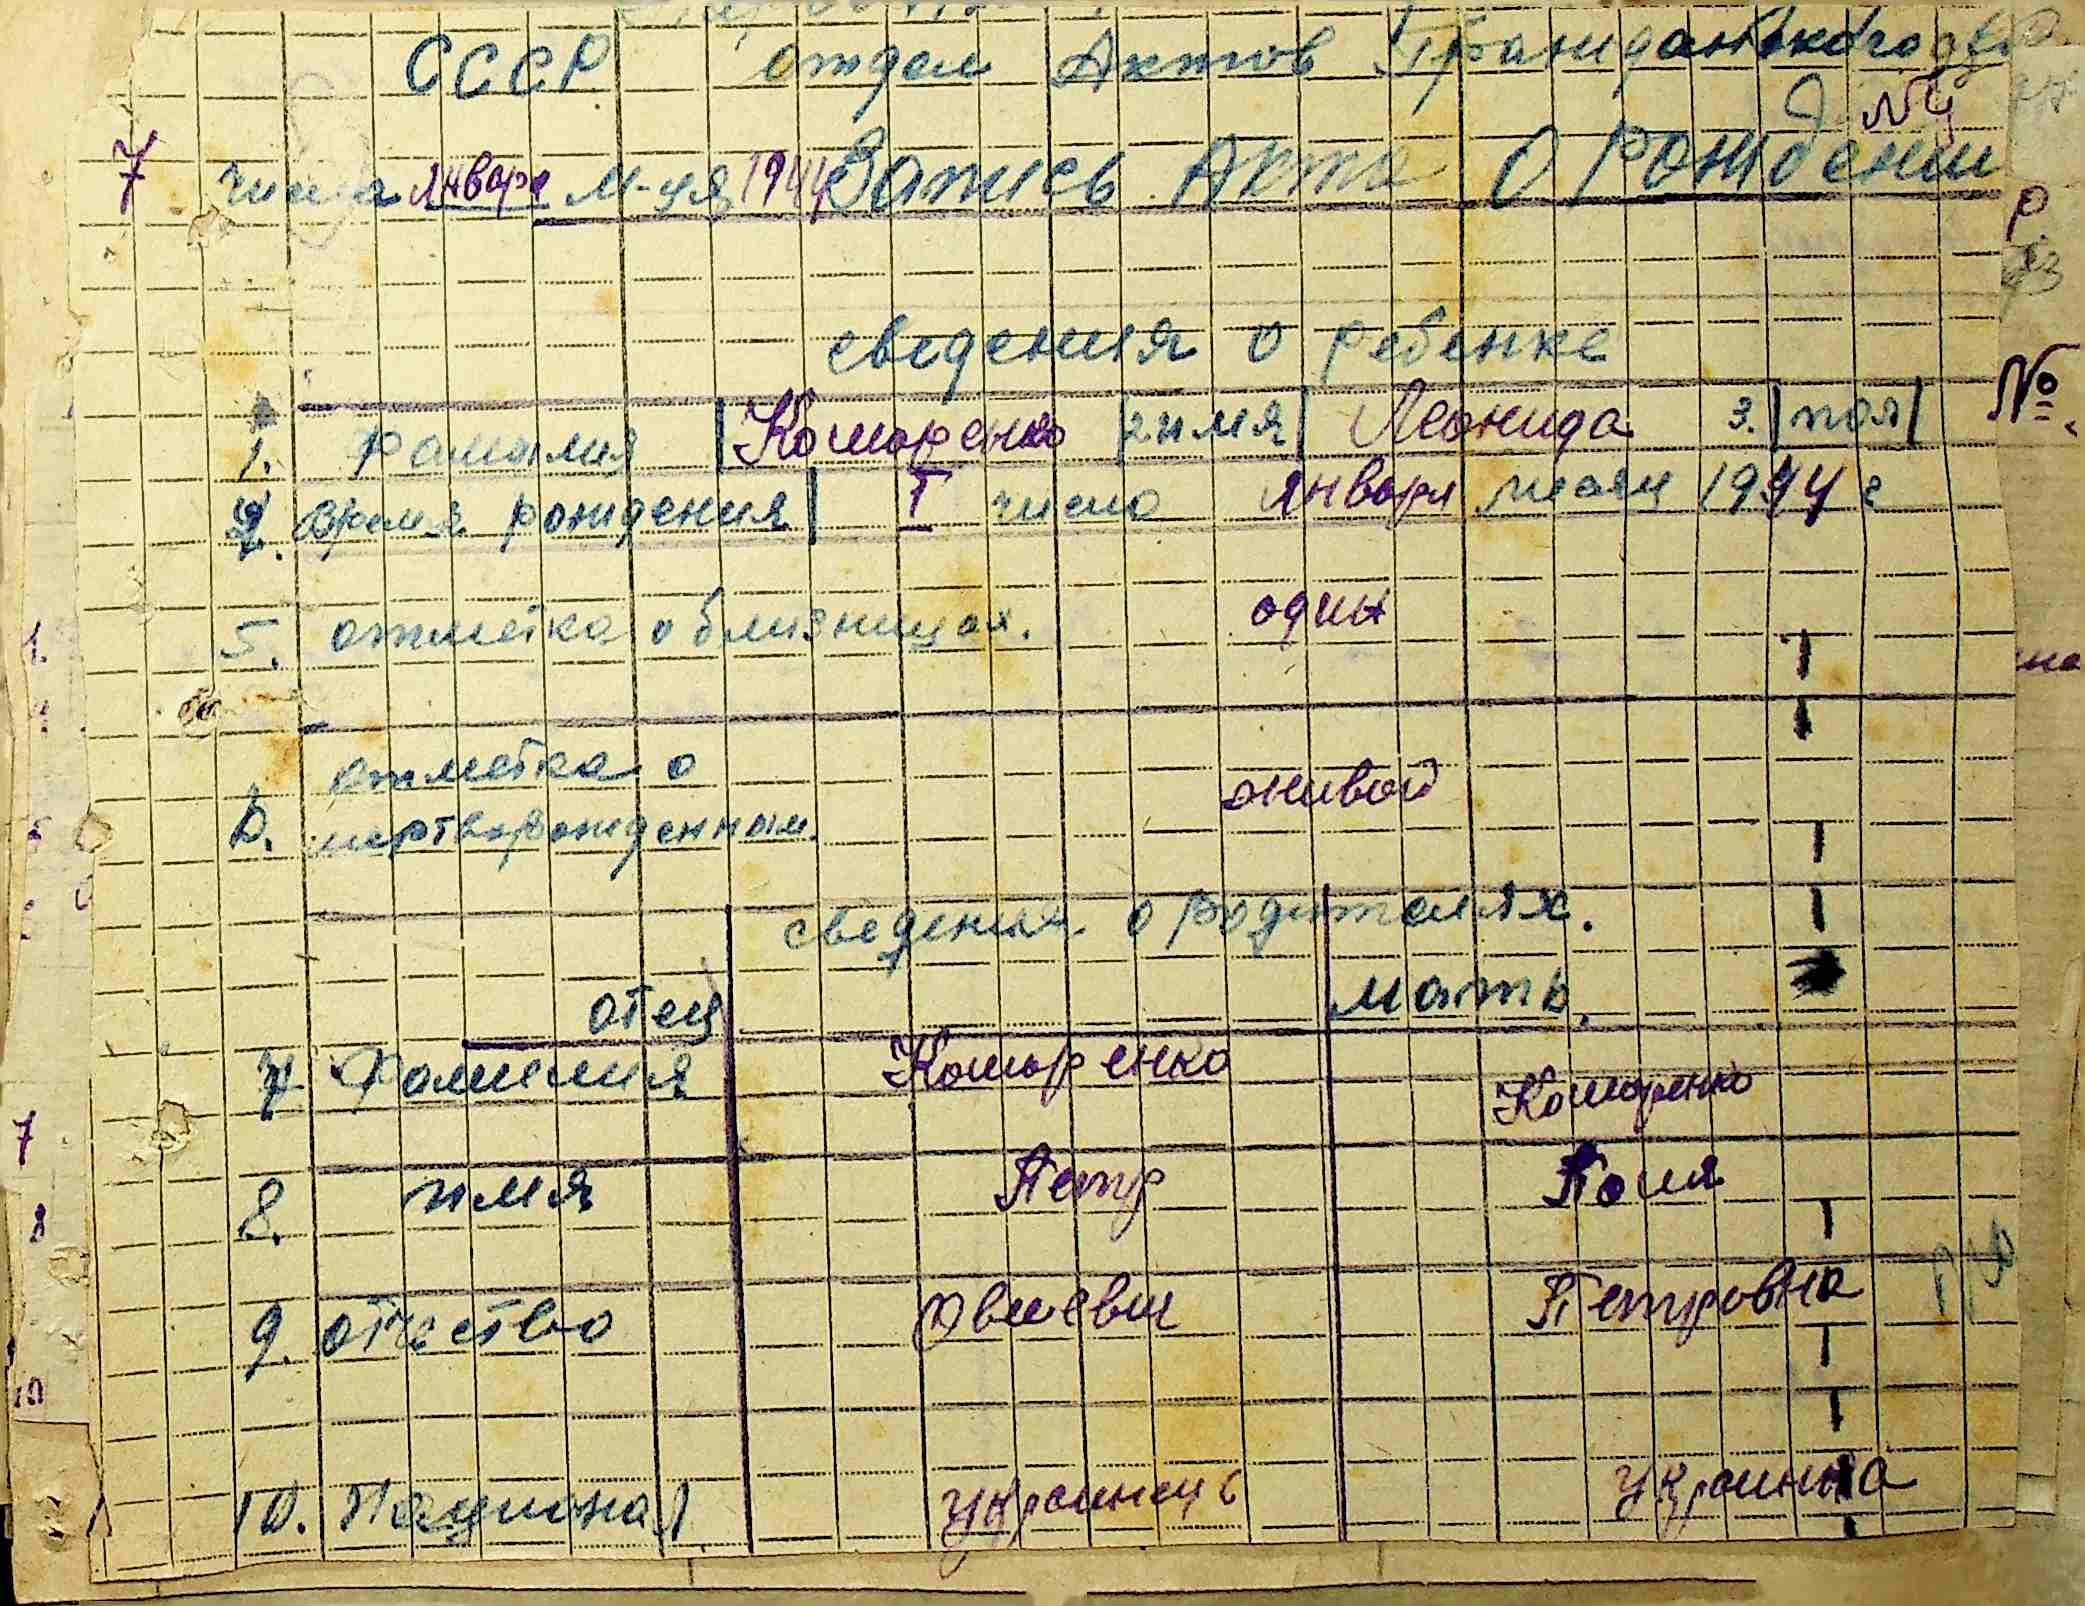 СССР отдел Актов Гражданского
№ 4
7 числа января м-ця 1944 Запись Акта о рождении
сведения о ребенке
1. Фамилия Комаренко 2 имя Леонида 3. пол
4. Время рождения I число января месяц 1944 г
5. отметка о близницах. один
6. отметка о
мертворожденным. живой
сведения о родителях.
отец мать.
7 Фамилия Комаренко Комаренко
8. имя Петр Поля
9. отчество Петровна
10. Национал украинець украинка